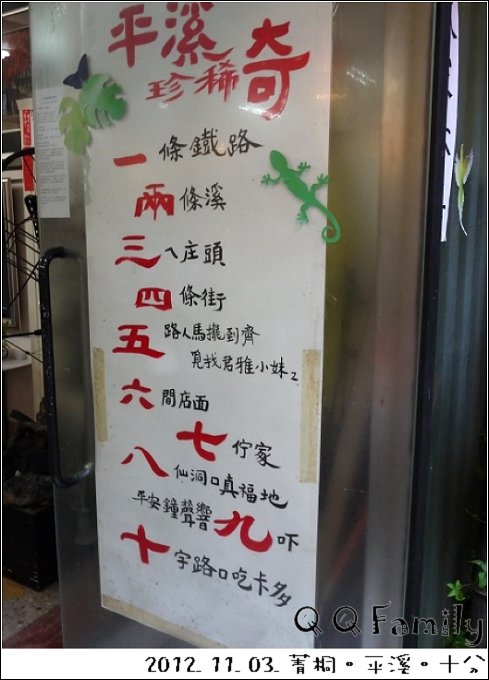 平溪
珍稀奇
一條鐵路
兩條溪
三ㄟ庄頭
四條街
五路人馬攏到齊
覓找君雅小妹妹
六間店面
七佇家
八仙洞口真福地
平安鐘聲響九吓
十字路口吃卡多
QQ Family
2012. 11. 03. 菁桐。平溪。十分